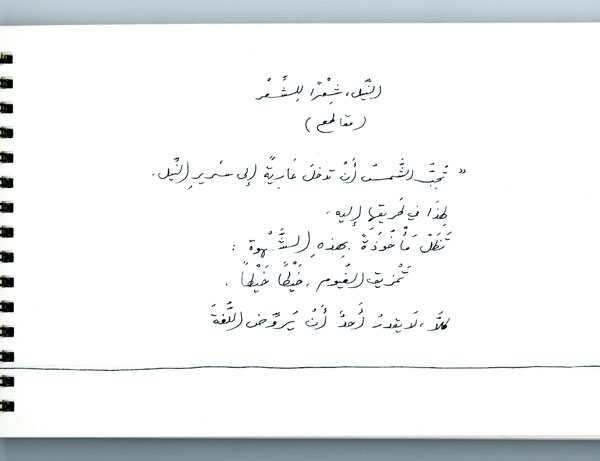 النِّيل، شِعْرًا لِلشَّعْر
(مقاطع)
" تُحِبُّ الشَّمسُ أَنْ تدخلَ عَارِيَةً إلى سَريرِ النِّيل.
لِهذَا في طَريقِهَا إليه،
تَظَلّ مَأْخُوذَةً بِهذهِ الشَّهْوة :
تَمْزيق الغُيوم، خَيْطًا خَيْطاً.
كلاَّ، لَا يقدرُ أَحدٌ أَنْ يُروِّضَ اللُّغَةَ